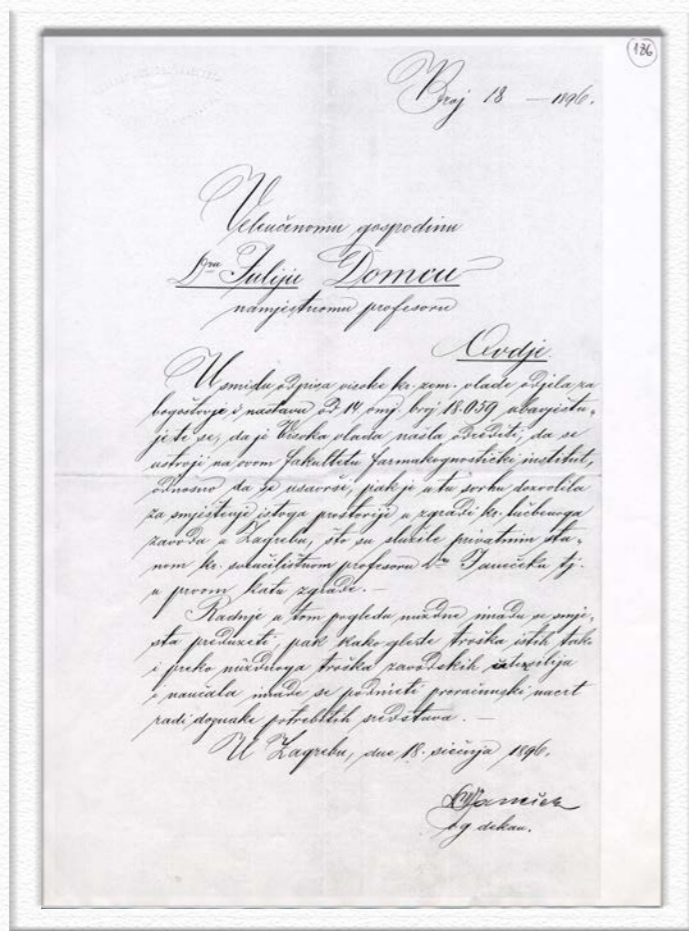 186
Broj 18 — 1896.
Veleučenomu gospodinu
Dru Juliju Domcu
namjestnomu profesoru
Ovdje.
U smislu odpisa visoke kr. zem. vlade odjela za
bogoštovje i nastavu od 14. omj. broj 18.059 obavješću-
jete se, da je Visoka vlada našla odrediti, da se
ustroji na ovom fakultetu farmakognostički institut,
odnosno da se usavrši, pak je u tu svrhu dozvolila
za smještenje istoga prostorije u zgradi kr. lučbenoga
zavoda u Zagrebu, što su služile privatnim sta-
nom kr. sveučilištnom profesoru Dru Janečeku tj.
u prvom katu zgrade. —
Radnje u tom pogledu nuždne imadu se smje-
sta preduzeti, pak kako glede troška istih tako
i preko nuždnoga troška zavodskih utensilija
i naučala imade se podnieti proračunski nacrt
radi doznake potrebitih sredstava. —
U Zagrebu, dne 18. siečnja 1896.
dekan.